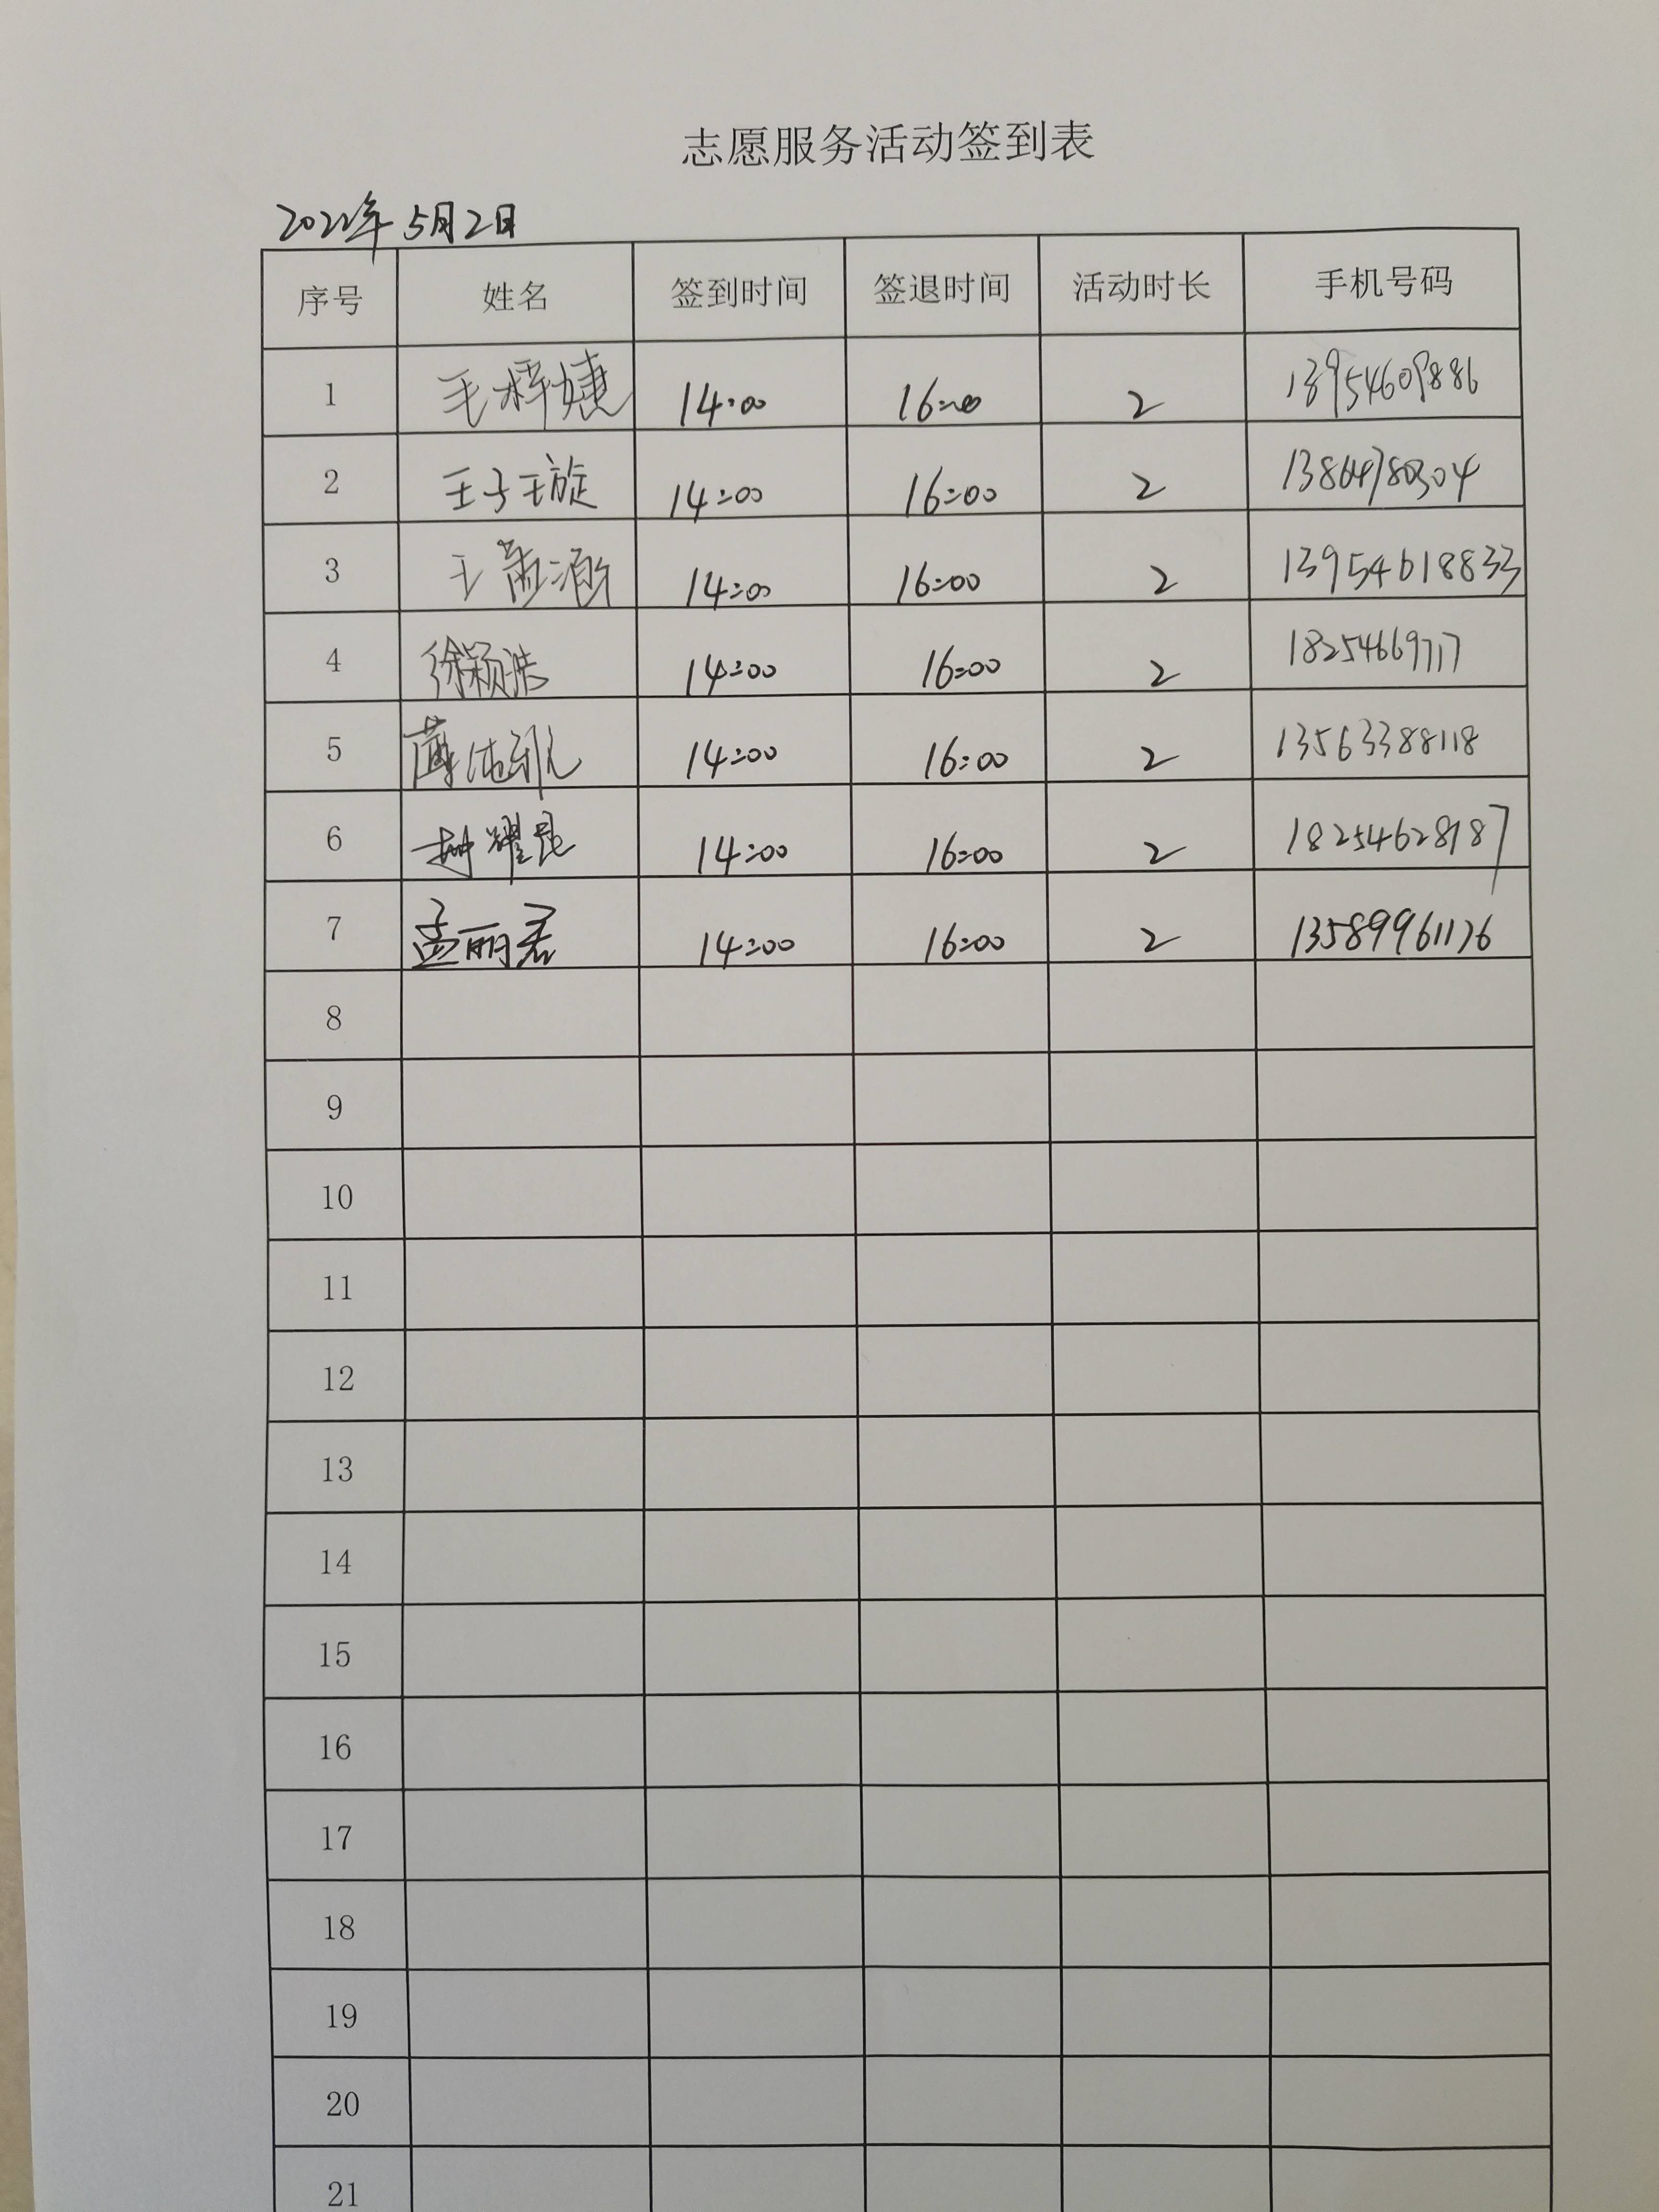 志愿服务活动签到表
2022年5月2日
序号 姓名 签到时间 签退时间 活动时长 手机号码
1 毛梓婕 14:00 16:00 2 13954609886
2 王子琁 14:00 16:00 2 13864780304
3 王萧涵 14:00 16:00 2 13954618833
4 徐颖浩 14:00 16:00 2 18254669717
5 14:00 16:00 2 13563388118
6 耀昆 14:00 16:00 2 18254628187
7 孟丽君 14:00 16:00 2 13589961126
8
9
10
11
12
13
14
15
16
17
18
19
20
21